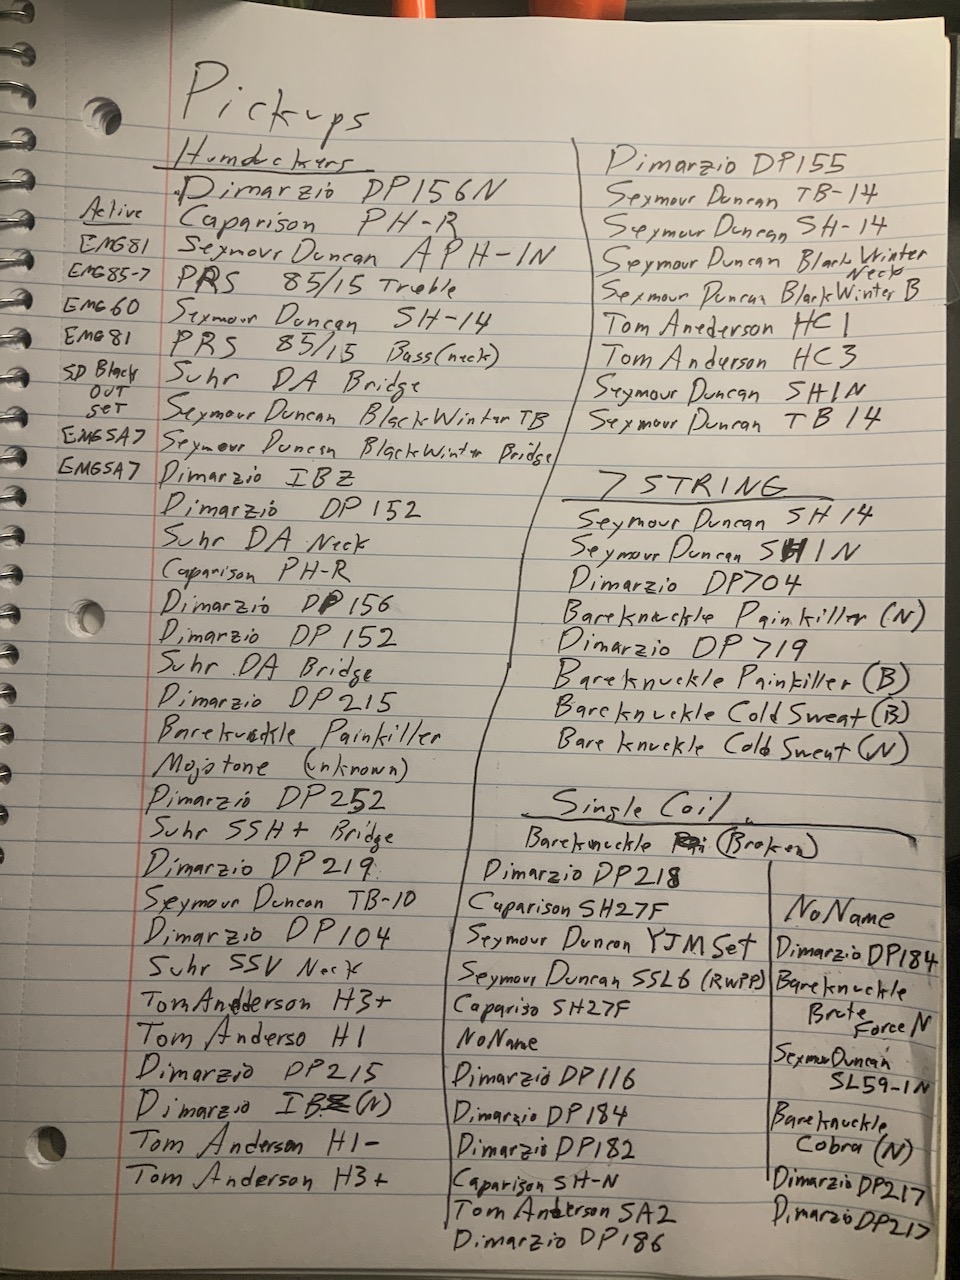 Pickups
Humduckers
Dimarzio DP156N
Caparison PH-R
Seymour Duncan APH-1N
PRS 85/15 Treble
Seymour Duncan SH-14
PRS 85/15 Bass (neck)
Suhr DA Bridge
Seymour Duncan BlackWinter TB
Seymour Duncan BlackWinter Bridge
Dimarzio IBZ
Dimarzio DP 152
Suhr DA Neck
Caparison PH-R
Dimarzio DP 156
Dimarzio DP 152
Suhr DA Bridge
Dimarzio DP 215
Bareknuckle Painkiller
Mojotone (unknown)
Dimarzio DP252
Suhr SSH+ Bridge
Dimarzio DP219
Seymour Duncan TB-10
Dimarzio DP104
Suhr SSV Neck
Tom Andderson H3+
Tom Anderso H1
Dimarzio DP215
Dimarzio IBZ (N)
Tom Anderson H1-
Tom Anderson H3+
Active
EMG81
EMG85-7
EMG60
EMG81
SD Black
OUT
SET
EMGSA7
EMGSA7
Dimarzio DP155
Seymour Duncan TB-14
Seymour Duncan SH-14
Seymour Duncan Black Winter
Neck
Seymour Duncan BlackWinter B
Tom Anederson HC1
Tom Anderson HC3
Seymour Duncan SH1N
Seymour Duncan TB14
7 STRING
Seymour Duncan SH14
Seymour Duncan SH1N
Dimarzio DP704
Bareknuckle Painkiller (N)
Dimarzio DP719
Bareknuckle Painkiller (B)
Bareknuckle Cold Sweat (B)
Bare knuckle Cold Sweat (N)
Single Coil
Bareknuckle (Broken)
Dimarzio DP218
Caparison SH27F
Seymour Duncan YJM Set
Seymour Duncan SSL6 (RWRP)
Capariso SH27F
NoName
Dimarzio DP116
Dimarzio DP184
Dimarzio DP182
Caparison SH-N
Tom Anderson SA2
Dimarzio DP186
NoName
Dimarzio DP184
Bareknuckle
Brute
Force N
Seymour Duncan
SL59-1N
Bareknuckle
Cobra (N)
Dimarzio DP217
Dimarzio DP217